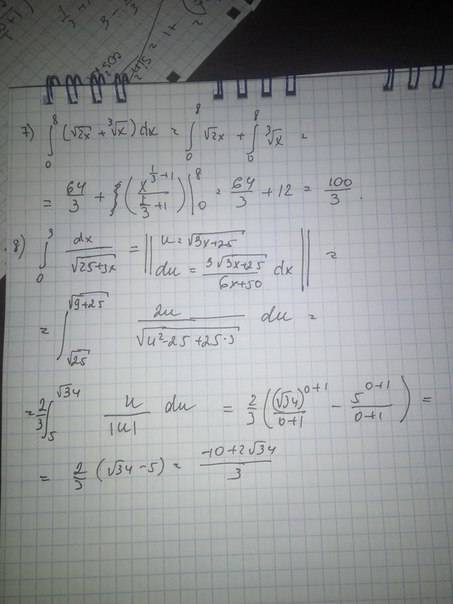 7) ∫₀⁸ (√2x + ∛x) dx = ∫₀⁸ √2x + ∫₀⁸ ∛x =
= 64/3 + (x^(1/3+1)/(1/3+1))|₀⁸ = 64/3 + 12 = 100/3.
8) ∫₀³ dx/√(25+3x) = ‖ u = √(3x+25)
du = 3√(3x+25)/(6x+50) dx ‖ =
= ∫_√25^√(9+25) 2u/√(u²-25+25·3) du =
= 2/3 ∫₅^√34 u/|u| du = 2/3 ((√34)^(0+1)/(0+1) - 5^(0+1)/(0+1)) =
= 2/3 (√34 - 5) = (-10+2√34)/3